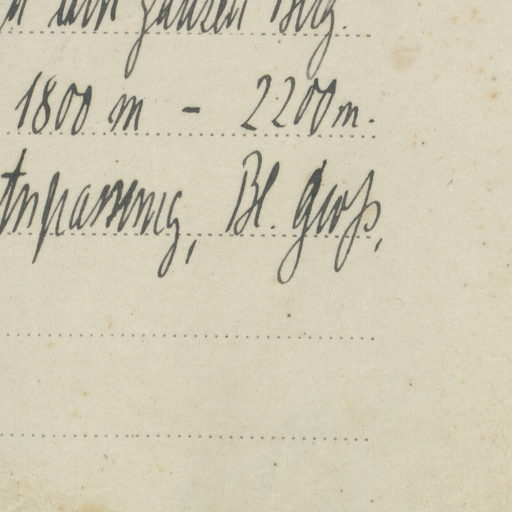 ganzen Berg.
1800 m - 2200 m.
Anpassung, Bl. groß,